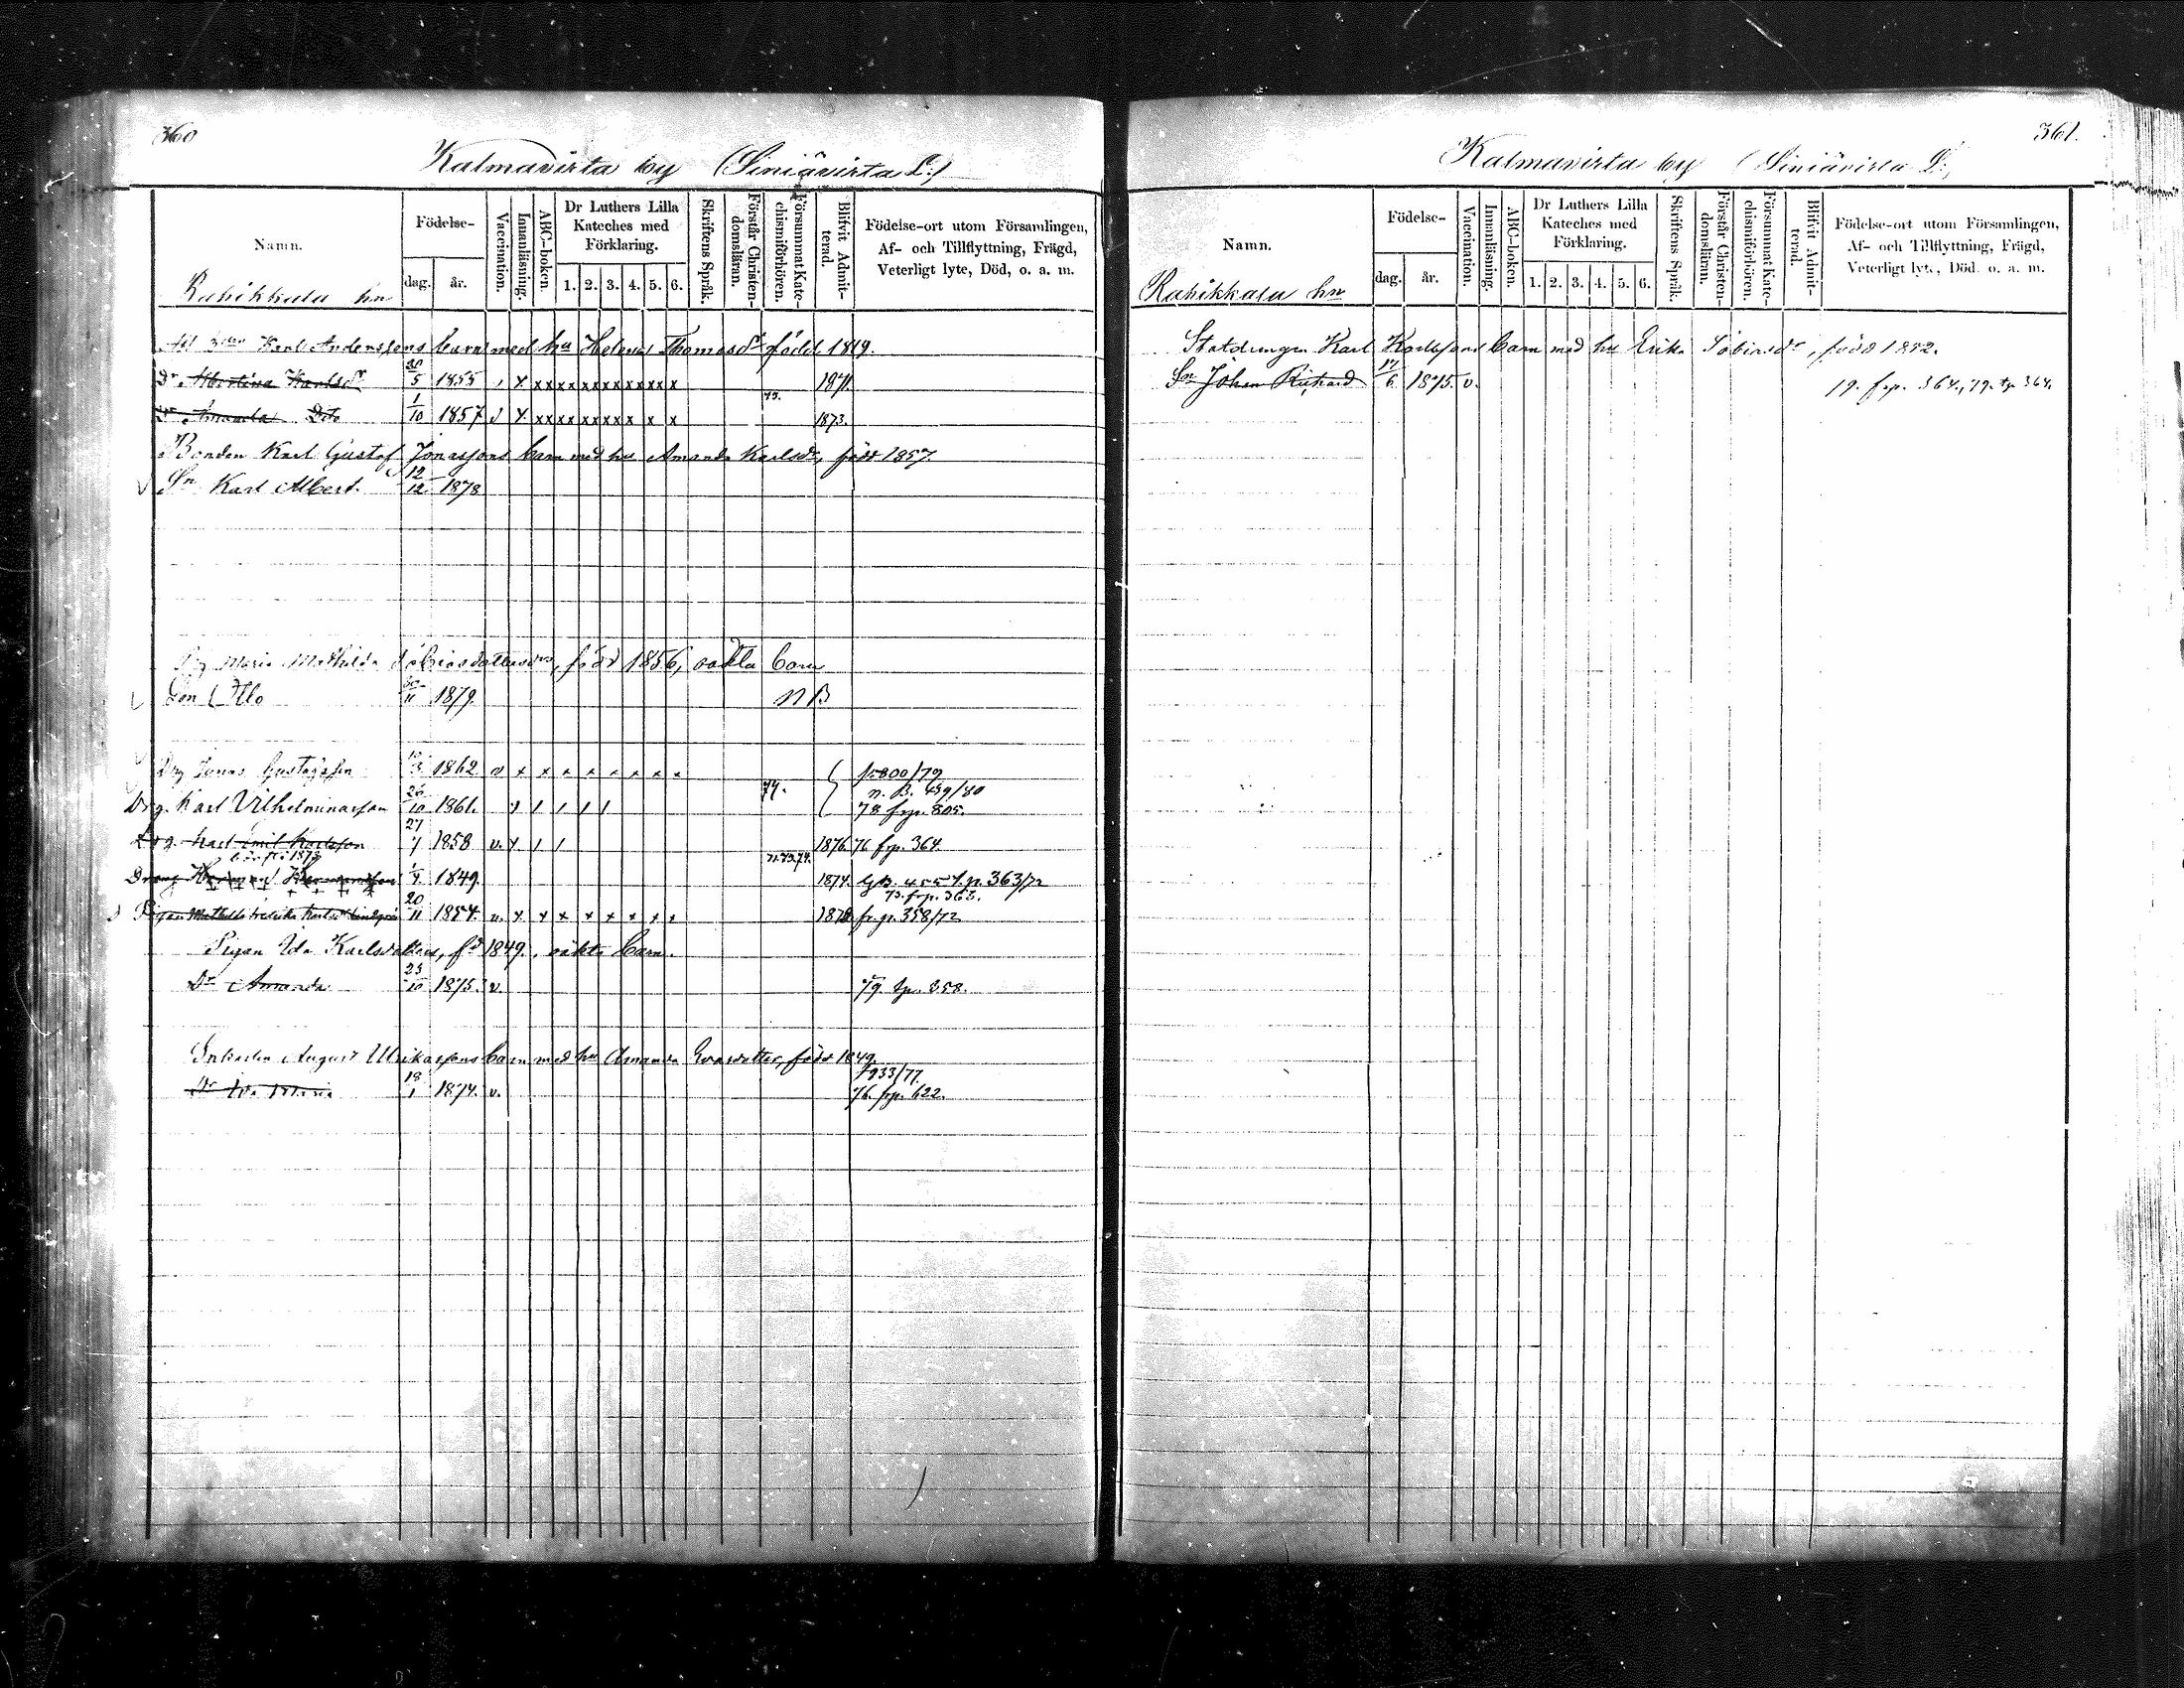 360
Kalmavirta by (Siniävirta L:)
Namn.
Födelse-
dag.
år.
Vaccination.
Innanläsning.
ABC-boken.
Dr Luthers Lilla Kateches med Förklaring.
1. 2. 3. 4. 5. 6.
Skriftens Språk.
Förstår Christen-domsläran.
Försummat Kate-chismiförhören.
Blifvit Admit-terad.
Födelse-ort utom Församlingen,
Af- och Tillflyttning, Frägd,
Veterligt lyte, Död, o. a. m.
Rahikkala hn
Karl Anderssons barn med hu Helena Thomasdr född 1819.
Dr Albertina Karlsdr 30/5 1855 x x x x x x x x x x x x 1871.
Dr Amanda Dito 1/10 1857 v x x x x x x x x x x x 75. 1873.
Bonden Karl Gustaf Jonassons barn med hu Amanda Karlsdr, född 1857.
Sn Karl Albert. 12/12 1878
Pig Maria Mathilda Tobiasdotters, född 1856, oäkta barn
Son Otto 30/11 1879. NB
Drg Jonas Gustafsson 1862. v x x x x x x x x fr 800/79
Drg. Karl Vilhelminasson 26/10 1861. 74. n. B. 459/80
78 frp. 805.
Drg. Karl Emil Karlsson 27/7 1858 v. 1876. 76 frp. 364.
Dräng Herman Hermansson 1/4 1849. 71.73.74. 1874. 363/72
73. frp. 363.
Pigan Mathilda Karlsdr 20/11 1854. v. x x x x x x x x fr. p. 358/72
Pigan Ida Karlsdotters, fd 1849., oäkta barn.
Dr Amanda 23/10 1875. v. 79. tp. 358.
Inhysing August Ulrikassons barn med hu Amanda Evasdotter, född 1849.
933/77.
Dr Ida Maria 18/1 1874. v. 76. frp. 622.
361.
Kalmavirta by (Siniävirta L:)
Namn.
Födelse-
dag.
år.
Vaccination.
Innanläsning.
ABC-boken.
Dr Luthers Lilla Kateches med Förklaring.
1. 2. 3. 4. 5. 6.
Skriftens Språk.
Förstår Christen-domsläran.
Försummat Kate-chismiförhören.
Blifvit Admit-terad.
Födelse-ort utom Församlingen,
Af- och Tillflyttning, Frägd,
Veterligt lyte, Död, o. a. m.
Rahikkala hn
Statdrengen Karl Karlssons barn med hu Erika Tobiasdr, född 1852.
Sn Johan Richard 17/6 1875. v. 79. frp. 364., 79. tp. 364.